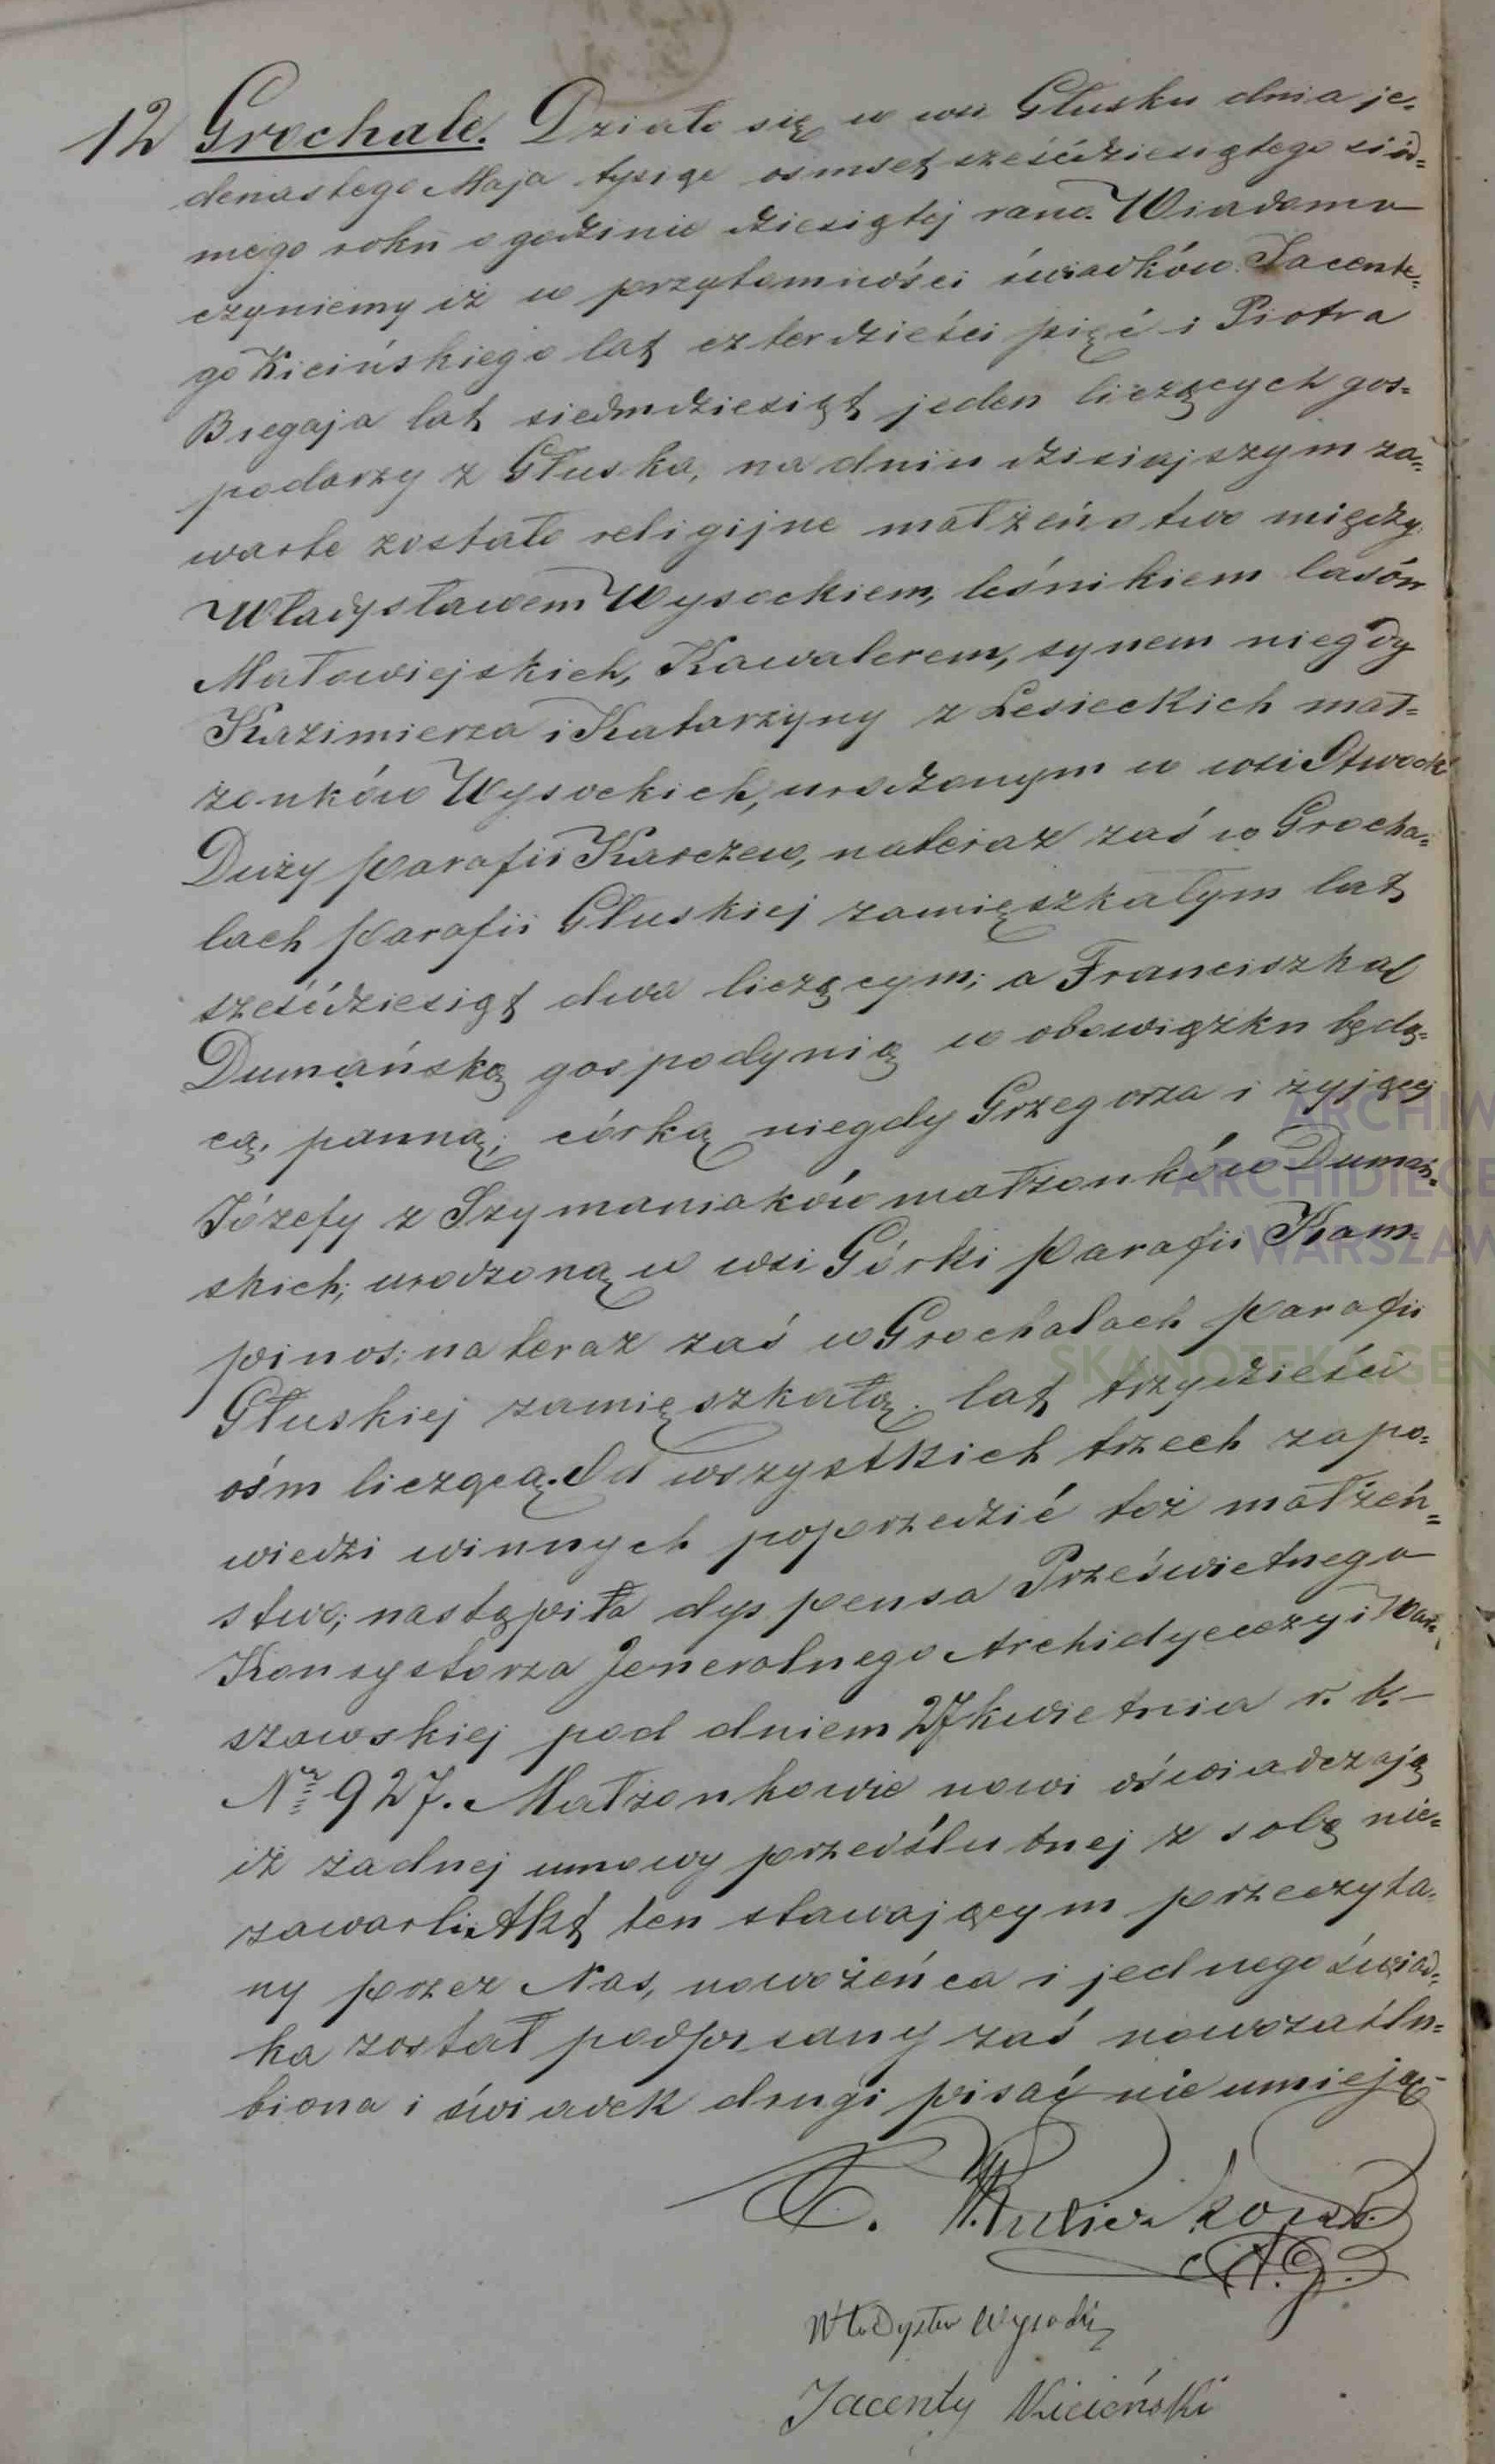 12 Grochale. Działo się w wsi Głusku dnia je-
denastego Maja tysiąc osmset sześćdziesiątego siód-
mego roku o godzinie dziesiątej rano. Wiadomo
czyniemy iż w przytomności świadków Jacente-
go Kicińskiego lat czterdzieści pięć i Piotra
Biegaja lat siedmdziesiąt jeden liczących gos-
podarzy z Głuska, na dniu dzisiajszym za-
warte zostało religijne małżeństwo między
Władysławem Wysockiem, leśnikiem lasów
Małowiejskich, Kawalerem, synem niegdy
Kazimierza i Katarzyny z Lesieckich mał-
żonków Wysockich, urodzonym w wsi Otwock
Duży parafii Karczew, nateraz zaś w Grocha-
lach parafii Głuskiej zamięszkałym lat
sześćdziesiąt dwa liczącym; a Franciszką
Dumańską gospodynią w obowiązku będą-
cą, panną; córką niegdy Grzegorza i żyjącej
Józefy z Szymaniaków małżonków Dumań-
skich; urodzoną w wsi Górki parafii Kam-
pinos; na teraz zaś w Grochalach parafii
Głuskiej zamięszkałą lat trzydzieści
ośm liczącą. Od wszystkich trzech zapo-
wiedzi winnych poprzedzić toż małżeń-
stwo; nastąpiła dyspensa Prześwietnego
Konsystorza Jeneralnego Archidyecezyi War-
szawskiej pod dniem 27 kwietnia r. b.
Nr 927. Małżonkowie nowi oświadczają
iż żadnej umowy przedślubnej z sobą nie-
zawarli. Akt ten stawającym przeczyta-
ny przez Nas, nowożeńca i jednego świad-
ka został podpisany zaś nowozaślu-
biona i świadek drugi pisać nie umieją
Władysław Wysocki
Jacenty Kiciński
ARCHIW
ARCHIDIECE
WARSZAW
SKANOTEKA GEN